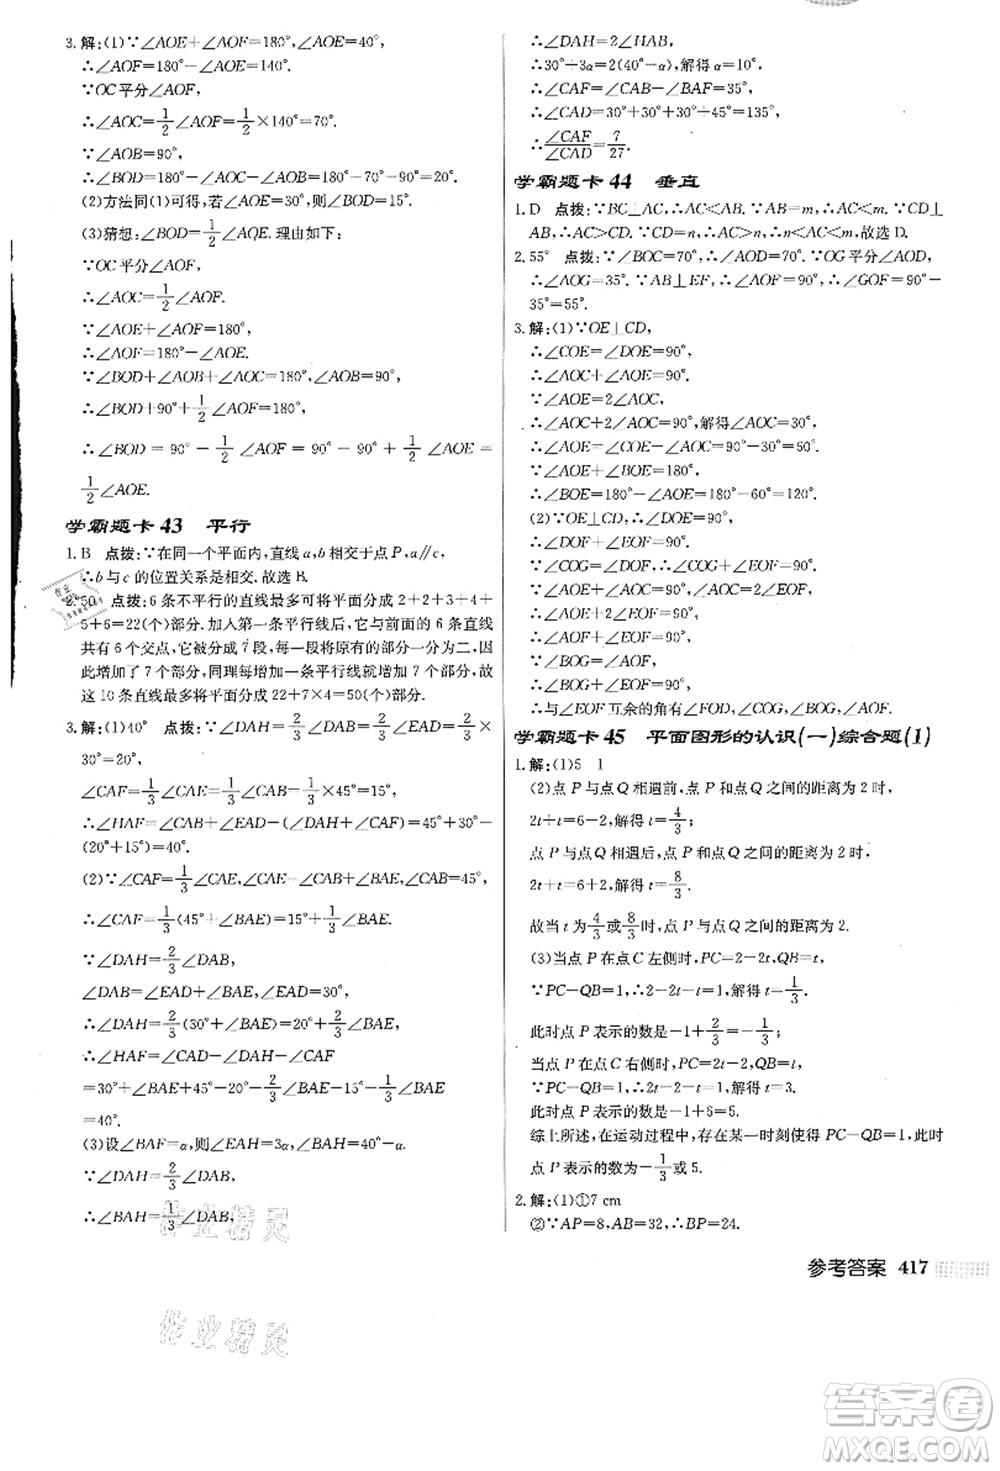 3.解:(1)∵∠AOE+∠AOF=180°,∠AOE=40°,
∴∠AOF=180°-∠AOE=140°.
∵OC平分∠AOF,
∴∠AOC=1/2∠AOF=1/2×140°=70°.
∵∠AOB=90°,
∴∠BOD=180°-∠AOC-∠AOB=180°-70°-90°=20°.
(2)方法同(1)可得,若∠AOE=30°,则∠BOD=15°.
(3)猜想:∠BOD=1/2∠AOE.理由如下:
∵OC平分∠AOF,
∴∠AOC=1/2∠AOF.
∵∠AOE+∠AOF=180°,
∴∠AOF=180°-∠AOE.
∵∠BOD+∠AOB+∠AOC=180°,∠AOB=90°,
∴∠BOD+90°+1/2∠AOF=180°,
∴∠BOD=90°-1/2∠AOF=90°-90°+1/2∠AOE=
1/2∠AOE.
学霸题卡 43 平行
1.B 点拨:∵在同一个平面内,直线a,b相交于点P,a∥c,
∴b与c的位置关系是相交.故选B.
2.50 点拨:6条不平行的直线最多可将平面分成2+2+3+4+
5+6=22(个)部分.加入第一条平行线后,它与前面的6条直线
共有6个交点,它被分成7段,每一段将原有的部分一分为二,因
此增加了7个部分,同理每增加一条平行线就增加7个部分,故
这10条直线最多将平面分成22+7×4=50(个)部分.
3.解:(1)40° 点拨:∵∠DAH=2/3∠DAB=2/3∠EAD=2/3×
30°=20°,
∠CAF=1/3∠CAE=1/3∠CAB=1/3×45°=15°,
∴∠HAF=∠CAB+∠EAD-(∠DAH+∠CAF)=45°+30°-
(20°+15°)=40°.
(2)∵∠CAF=1/3∠CAE=1/3(∠CAB+∠BAE),∠CAB=45°,
∴∠CAF=1/3(45°+∠BAE)=15°+1/3∠BAE.
∵∠DAH=2/3∠DAB,
∠DAB=∠EAD+∠BAE,∠EAD=30°,
∴∠DAH=2/3(30°+∠BAE)=20°+2/3∠BAE,
∴∠HAF=∠CAD-∠DAH-∠CAF
=30°+∠BAE+45°-20°-2/3∠BAE-15°-1/3∠BAE
=40°.
(3)设∠BAF=α,则∠EAH=3α,∠BAH=40°-α.
∵∠DAH=2/3∠DAB,
∴∠BAH=1/3∠DAB,
∴∠DAH=2∠HAB,
∴30°+3α=2(40°-α),解得α=10°,
∴∠CAF=∠CAB-∠BAF=35°,
∴∠CAD=30°+30°+30°+45°=135°,
∴∠CAF/∠CAD=7/27.
学霸题卡 44 垂直
1.D 点拨:∵BC⊥AC,∴AC<AB.∵AB=m,∴AC<m.∵CD⊥
AB,∴AC>CD.∵CD=n,∴AC>n,∴n<AC<m.故选D.
2.55° 点拨:∵∠BOC=70°,∴∠AOD=70°.∵OG平分∠AOD,
∴∠AOG=35°.∵AB⊥EF,∴∠AOF=90°,∴∠GOF=90°-
35°=55°.
3.解:(1)∵OE⊥CD,
∴∠COE=∠DOE=90°,
∴∠AOC+∠AOE=90°.
∵∠AOE=2∠AOC,
∴∠AOC+2∠AOC=90°,解得∠AOC=30°,
∴∠AOE=∠COE-∠AOC=90°-30°=60°.
∵∠AOE+∠BOE=180°,
∴∠BOE=180°-∠AOE=180°-60°=120°.
(2)∵OE⊥CD,∴∠DOE=90°,
∴∠FOD+∠EOF=90°.
∵∠COG=∠FOD,
∴∠COG+∠EOF=90°.
∵OF⊥AB,∴∠AOF=90°,
∴∠AOE+∠EOF=90°.
∵∠BOG=∠AOE,
∴∠BOG+∠EOF=90°,
∴与∠EOF互余的角有∠FOD,∠COG,∠BOG,∠AOE.
学霸题卡 45 平面图形的认识(一)综合题(1)
1.解:(1)5 1
(2)点P与点Q相遇前,点P和点Q之间的距离为2时,
2t+t=6-2,解得t=4/3;
点P与点Q相遇后,点P和点Q之间的距离为2时,
2t+t=6+2,解得t=8/3.
故当t为4/3或8/3时,点P与点Q之间的距离为2.
(3)当点P在点C左侧时,PC=2-2t,QB=t,
∵PC-QB=1,∴2-2t-t=1,解得t=1/3.
此时点P表示的数是-1+2/3=-1/3;
当点P在点C右侧时,PC=2t-2,QB=t,
∵PC-QB=1,∴2t-2-t=1,解得t=3.
此时点P表示的数是-1+6=5.
综上所述,在运动过程中,存在某一时刻使得PC-QB=1,此时
点P表示的数为-1/3或5.
2.解:(1)①7 cm
②∵AP=8,AB=32,∴BP=24.
参考答案 417
作业精灵
作业精灵
答案圈
MXQE.COM